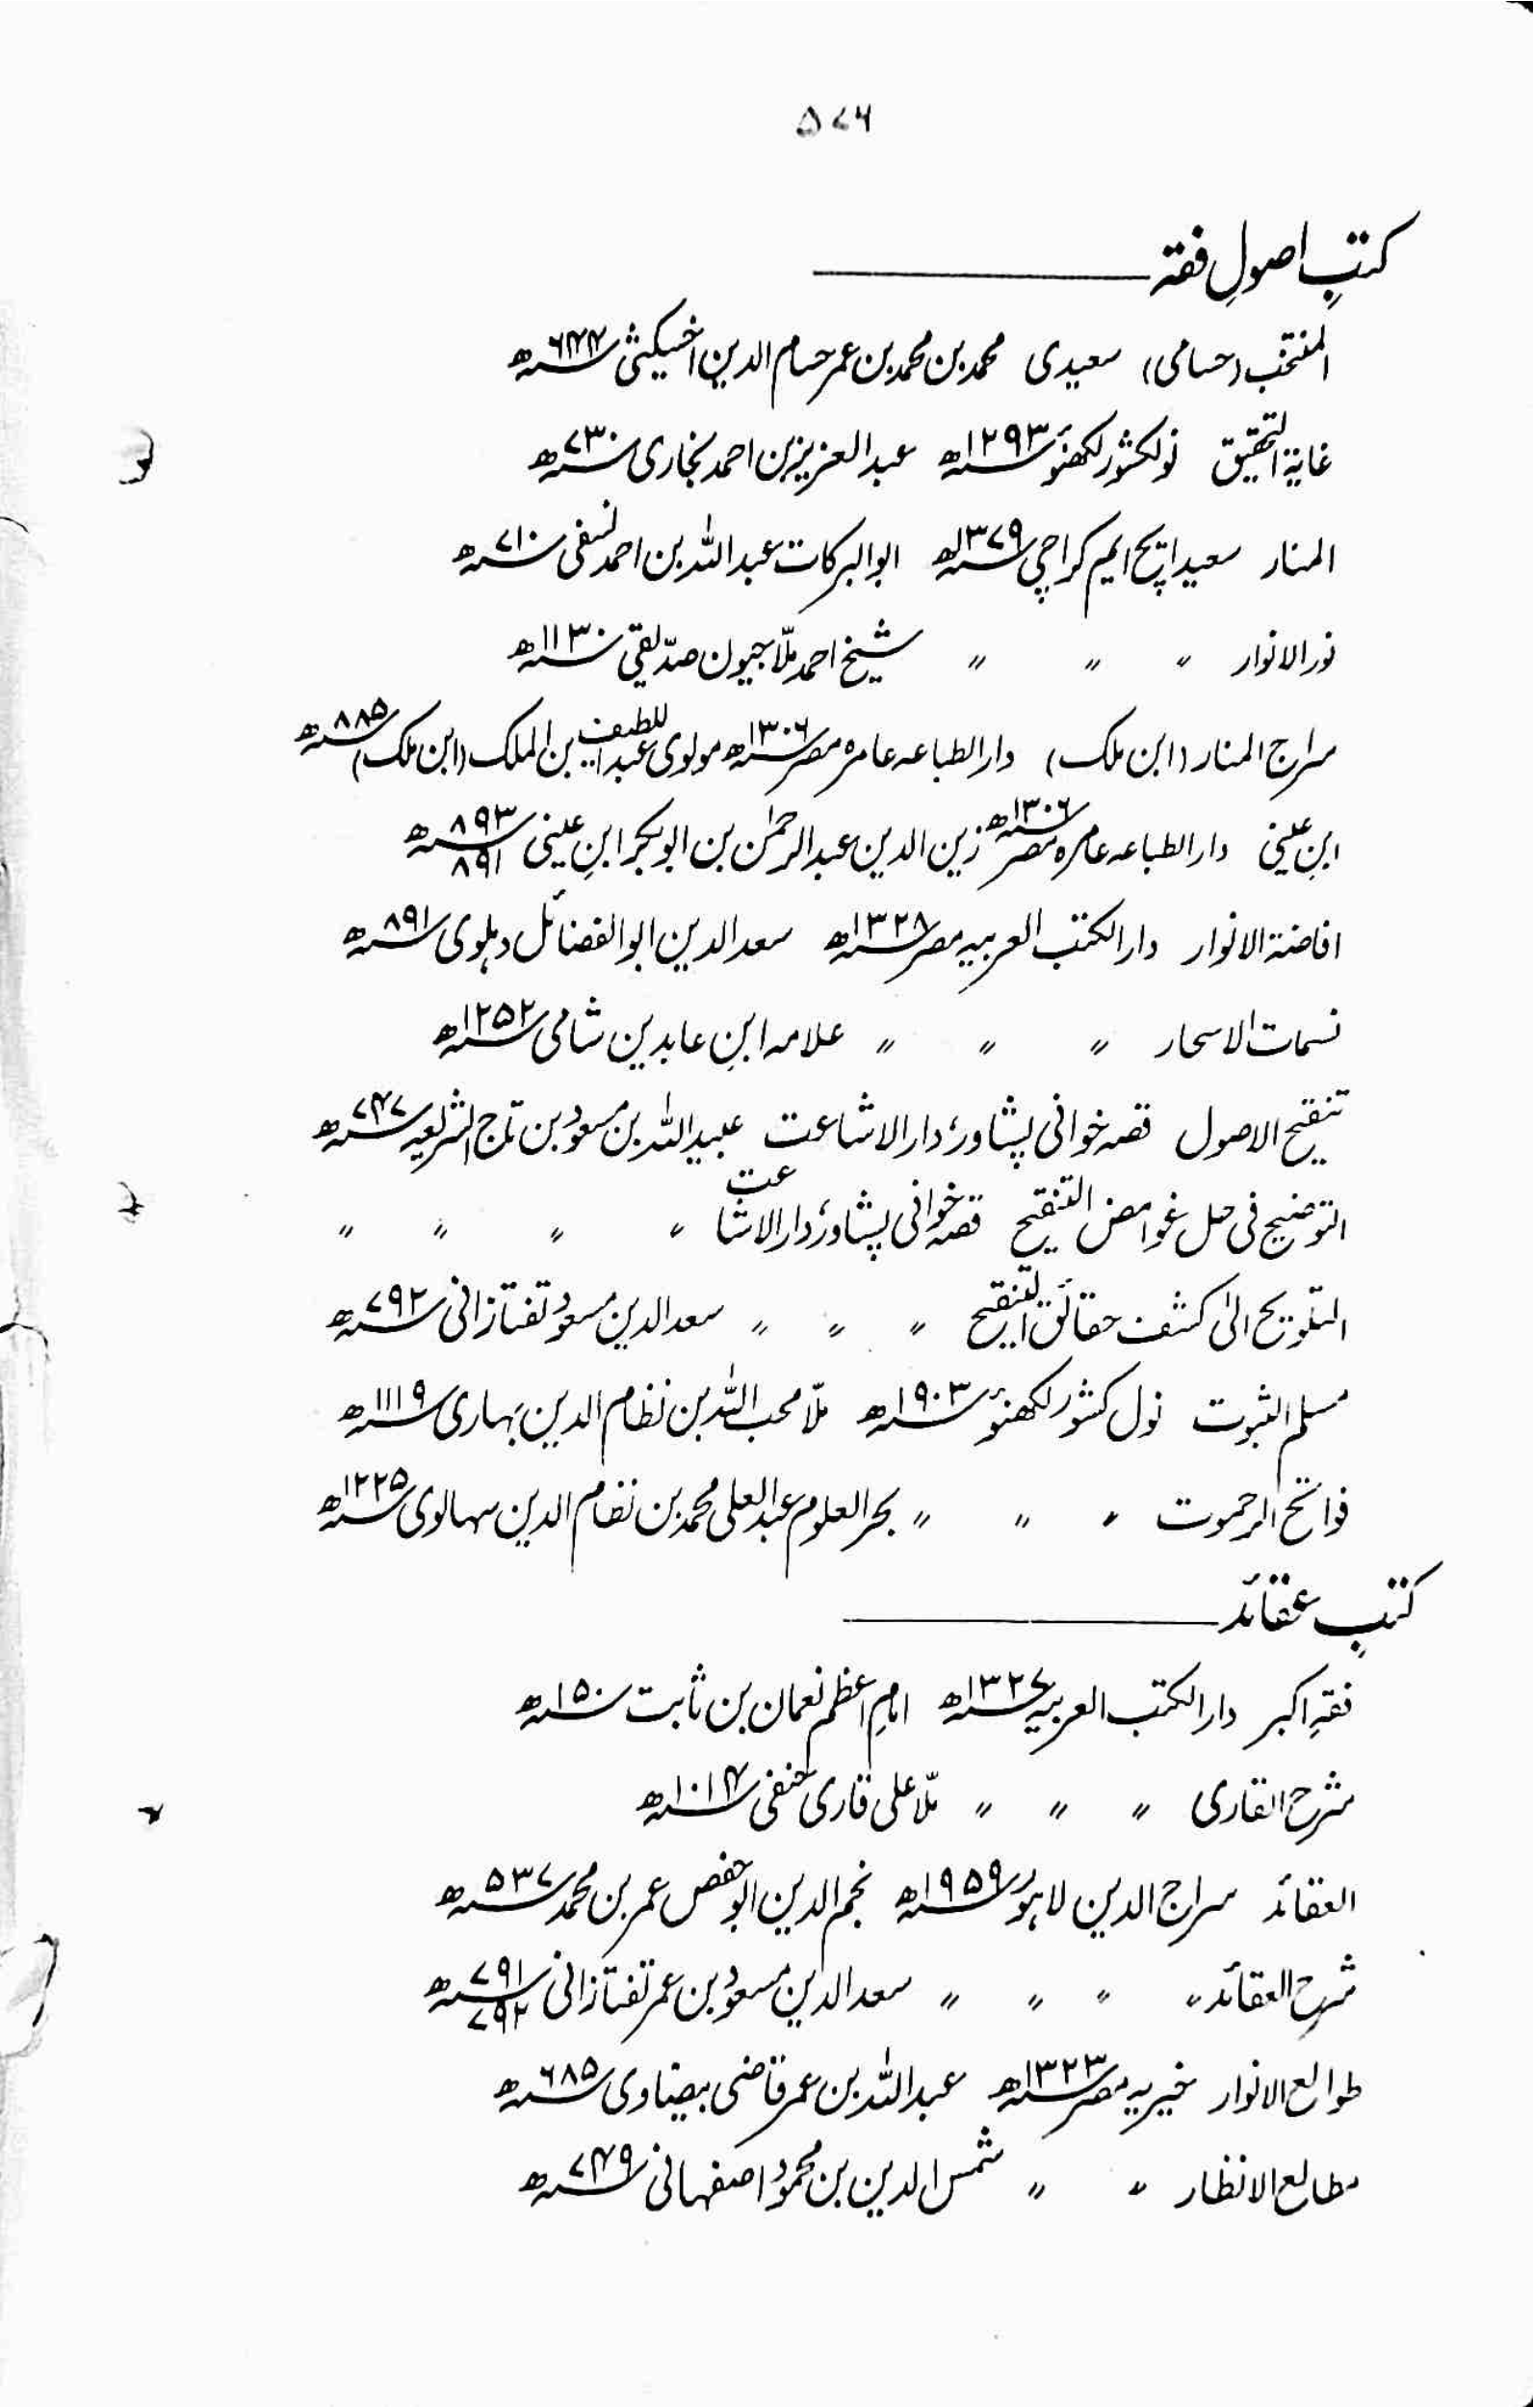 ۵۷۶
کتبِ اصولِ فقہ
المنتخب (حسامی) سعیدی محمد بن محمد بن عمر حسام الدین اخسیکثی ۶۴۴ھ
غایۃ التحقیق نولکشور لکھنؤ ۱۲۹۳ھ عبد العزیز بن احمد بخاری ۷۳۰ھ
المنار سعید ایچ ایم کراچی ۱۳۷۹ھ ابو البرکات عبد اللہ بن احمد نسفی ۷۱۰ھ
نور الانوار " " " شیخ احمد ملّا جیون صدّیقی ۱۱۳۰ھ
سراج المنار (ابن ملک) دار الطباعہ عامرہ مصر ۱۳۰۶ھ مولوی عبد اللطیف بن الملک (ابن ملک) ۸۸۵ھ
ابنِ عینی دار الطباعہ عامرہ مصر ۱۳۰۶ھ زین الدین عبد الرحمٰن بن ابو بکر ابنِ عینی ۸۹۳ھ ۸۹۱
افاضۃ الانوار دار الکتب العربیہ مصر ۱۳۲۸ھ سعد الدین ابو الفضائل دہلوی ۸۹۱ھ
نسمات الاسحار " " " علامہ ابنِ عابدین شامی ۱۲۵۲ھ
تنقیح الاصول قصہ خوانی پشاور، دار الاشاعت عبید اللہ بن مسعود بن تاج الشریعہ ۷۴۷ھ
التوضیح فی حل غوامض التنقیح قصہ خوانی پشاور، دار الاشاعت " " " "
التلویح الیٰ کشف حقائق التنقیح " " " سعد الدین مسعود تفتازانی ۷۹۲ھ
مسلم الثبوت نول کشور لکھنؤ ۱۹۰۳ھ ملّا محب اللہ بن نظام الدین بہاری ۱۱۱۹ھ
فواتح الرحموت " " " بحر العلوم عبد العلی محمد بن نظام الدین سہالوی ۱۲۲۵ھ
کتبِ عقائد
فقہِ اکبر دار الکتب العربیہ ۱۳۲۷ھ امامِ اعظم نعمان بن ثابت ۱۵۰ھ
شرح القاری " " " ملّا علی قاری حنفی ۱۰۱۴ھ
العقائد سراج الدین لاہور ۱۹۵۹ھ نجم الدین ابو حفص عمر بن محمد ۵۳۷ھ
شرح العقائد " " " " سعد الدین مسعود بن عمر تفتازانی ۷۹۱ھ ۷۹۲
طوالع الانوار خیریہ مصر ۱۳۲۳ھ عبد اللہ بن عمر قاضی بیضاوی ۶۸۵ھ
مطالع الانظار " " شمس الدین بن محمود اصفہانی ۷۴۹ھ